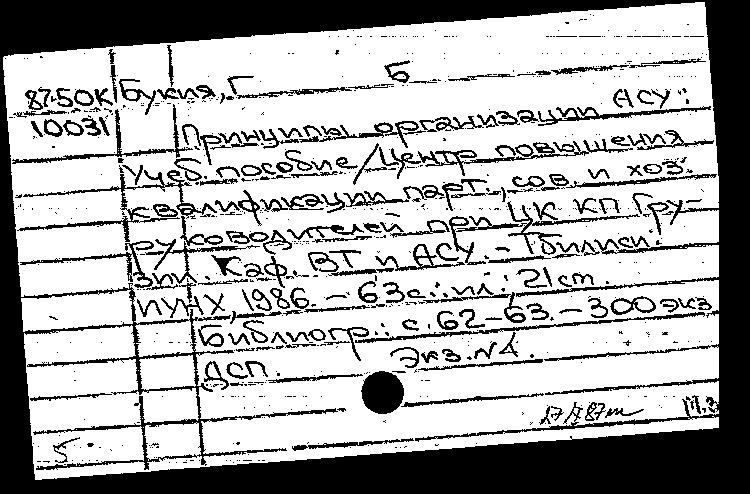 Б
87-50К Букия, Г
10031
Принципы организации АСУ:
Учеб. пособие / Центр повышения
квалификации парт., сов. и хоз.
руководителей при ЦК КП Гру-
зии. Каф. ВТ и АСУ. - Тбилиси:
ИУНХ, 1986. - 63с.: ил.; 21 ст.
Библиогр.: с. 62-63. - 300 экз
ДСП. Экз. N 4.
5